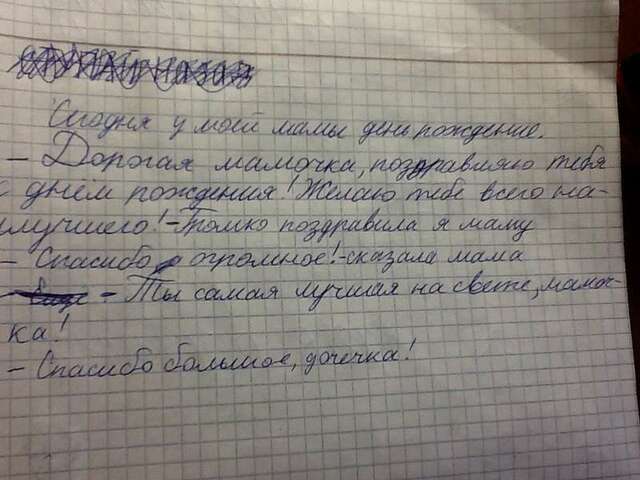 Сегодня у моей мамы день рождение.
– Дорогая мамочка, поздравляю тебя
с днём рождения! Желаю тебе всего на-
илучшего! – Громко поздравила я маму
– Спасибо огромное! – сказала мама
– Ты самая лучшая на свете, мамоч-
ка!
– Спасибо большое, дочечка!